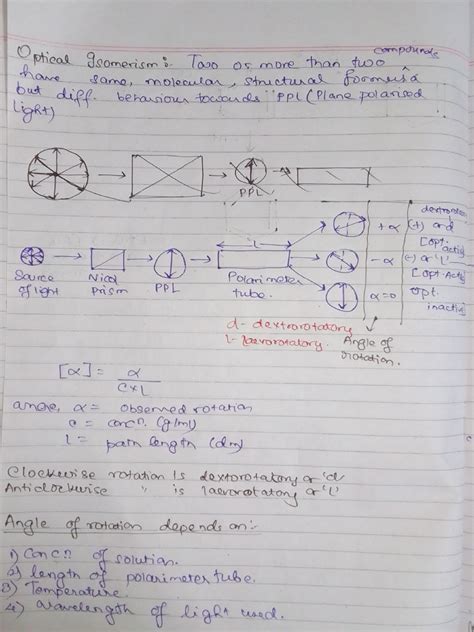 compounds
Optical Isomerism :- Two or more than two
have same, molecular, structural formula
but diff. behaviour towards PPL (Plane polarised
light)
PPL
dextroro
+α (+) or d
[opt. activ
l
-α (-) or 'l'
[opt. Acti
α=0 opt.
inactiv
Source of light
Nicol Prism
PPL
Polarimeter tube.
d- dextrorotatory
l- laevorotatory.
Angle of rotation.
[α] = α / C×L
where, α = observed rotation
c = concn. (g/ml)
l = path length (dm)
Clockwise rotation is dextorotatory or 'd'
Anticlockwise " is laevorotatory or 'l'
Angle of rotation depends on:-
1) Concn of solution.
2) length of polarimeter tube.
3) Temperature.
4) wavelength of light used.